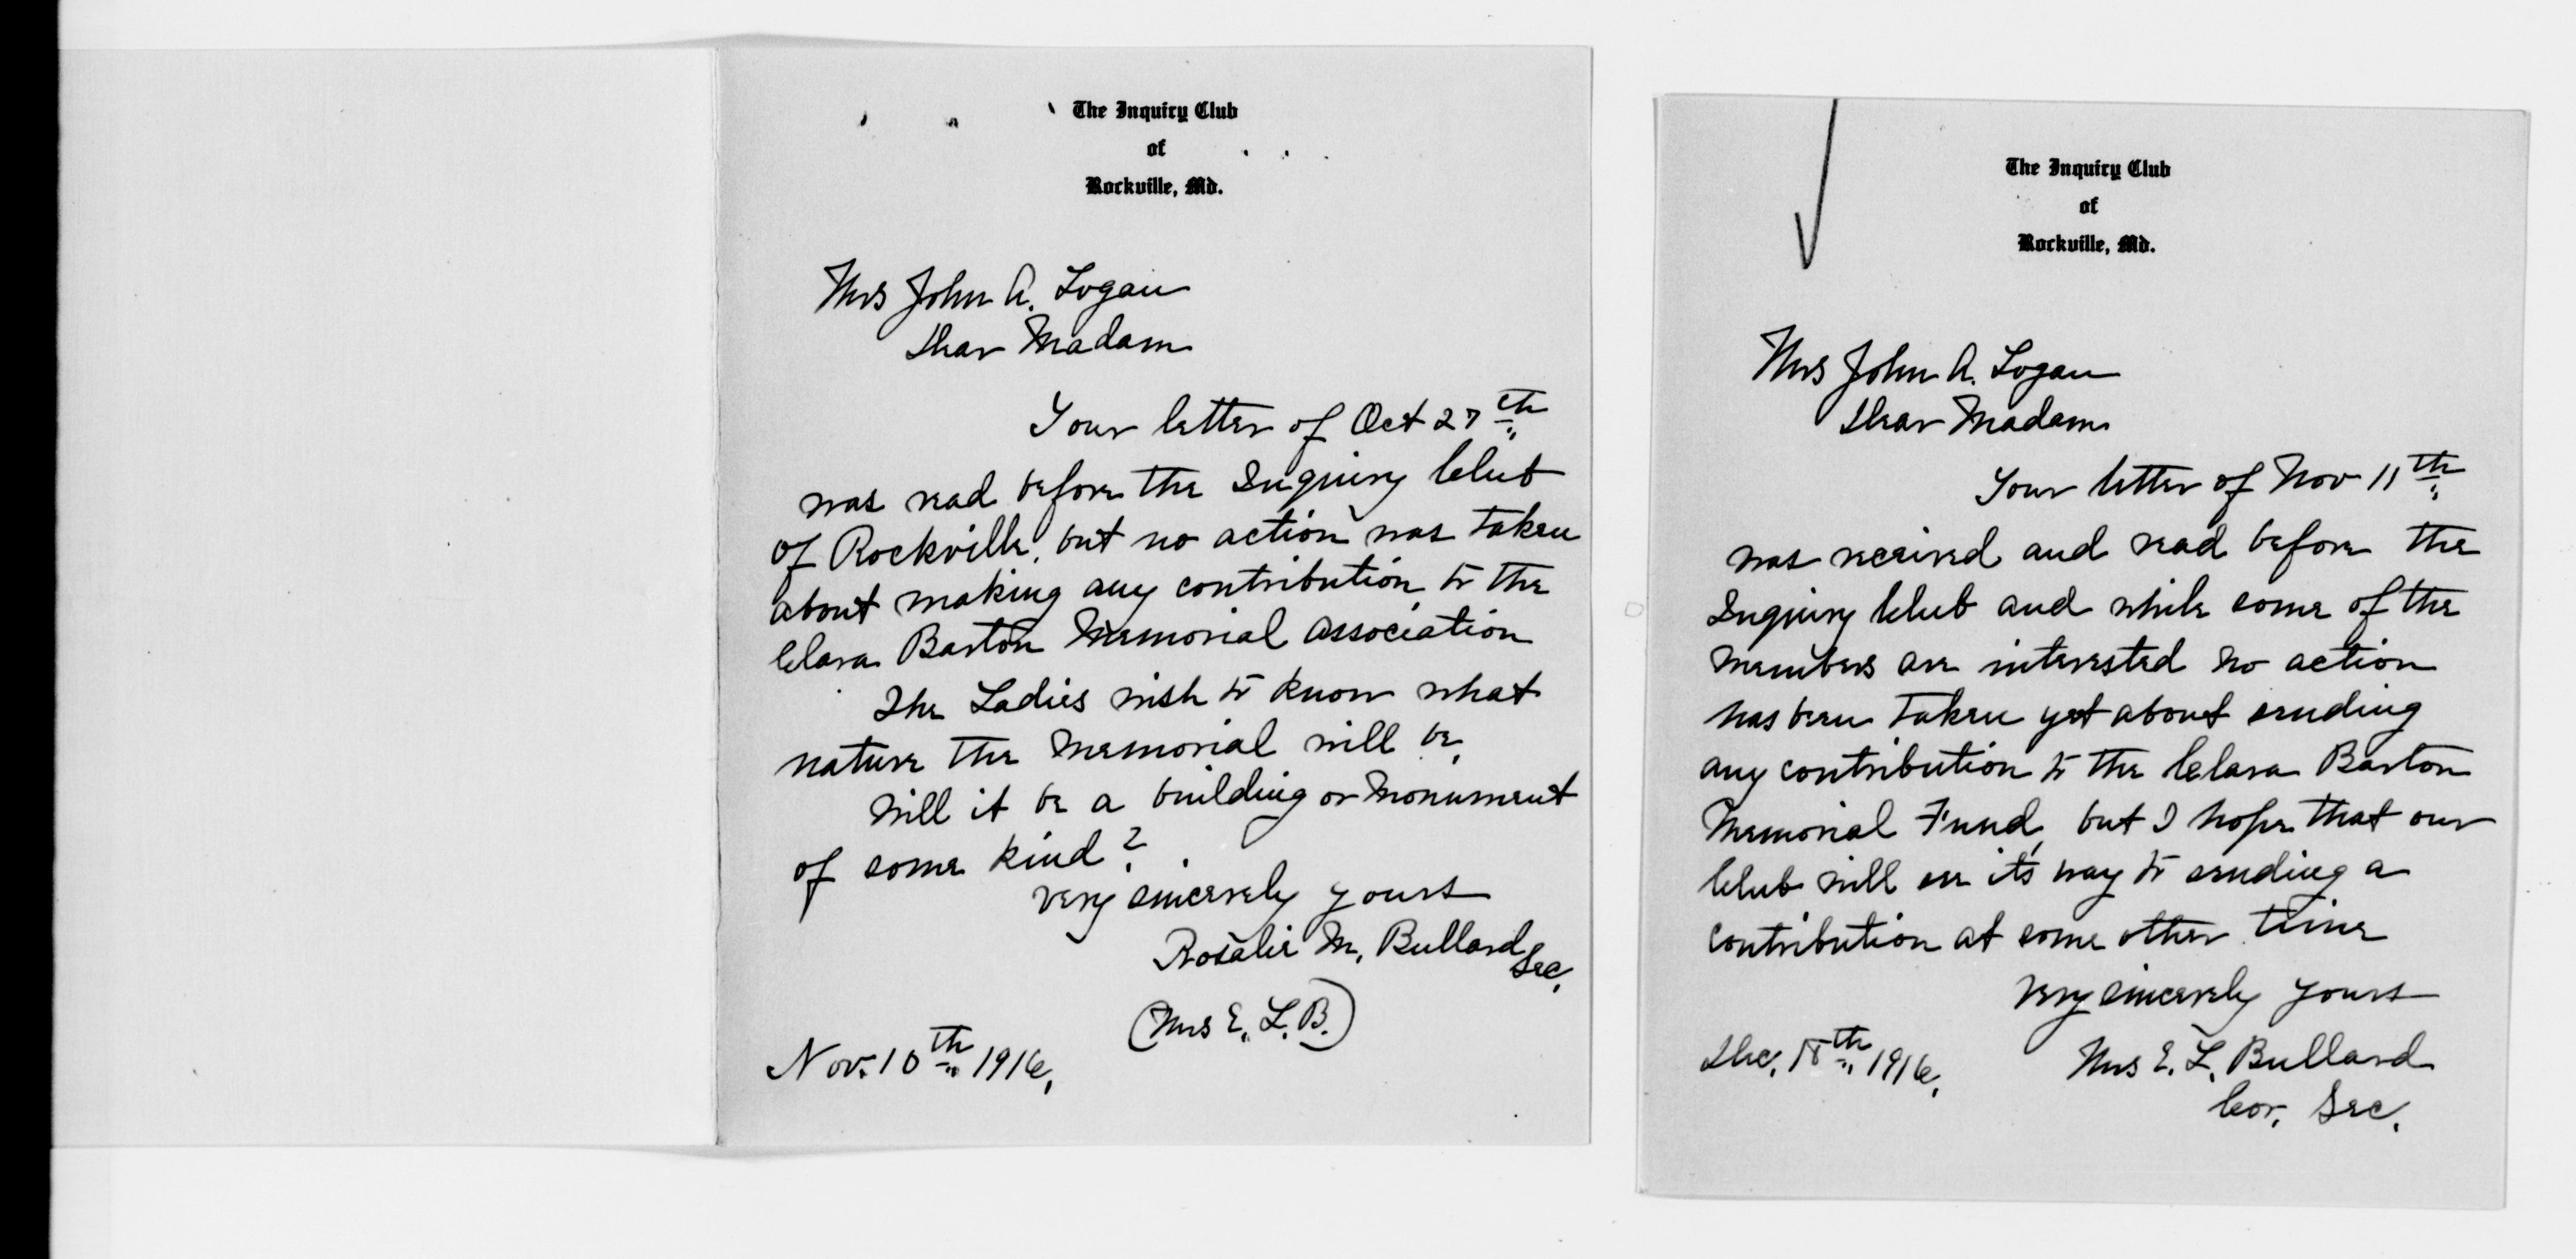 The Inquiry Club
of
Rockville, Md.
Mrs John A. Logan
Dear Madam
Your letter of Oct 27th
was read before the Inquiry Club
of Rockville, but no action was taken
about making any contribution to the
Clara Barton Memorial Association
The Ladies wish to know what
nature the Memorial will be,
Will it be a building or Monument
of some kind?
Very sincerely yours
Rosalie M. Bullard
Sec.
(Mrs E. L. B.)
Nov. 10th 1916.
The Inquiry Club
of
Rockville, Md.
Mrs John A. Logan
Dear Madam
Your letter of Nov 11th
was received and read before the
Inquiry Club and while some of the
Members are interested no action
has been taken yet about sending
any contribution to the Clara Barton
Memorial Fund, but I hope that our
Club will see it's way to sending a
contribution at some other time
Very sincerely yours
Dec. 18th 1916.
Mrs E. L. Bullard
Cor. Sec.